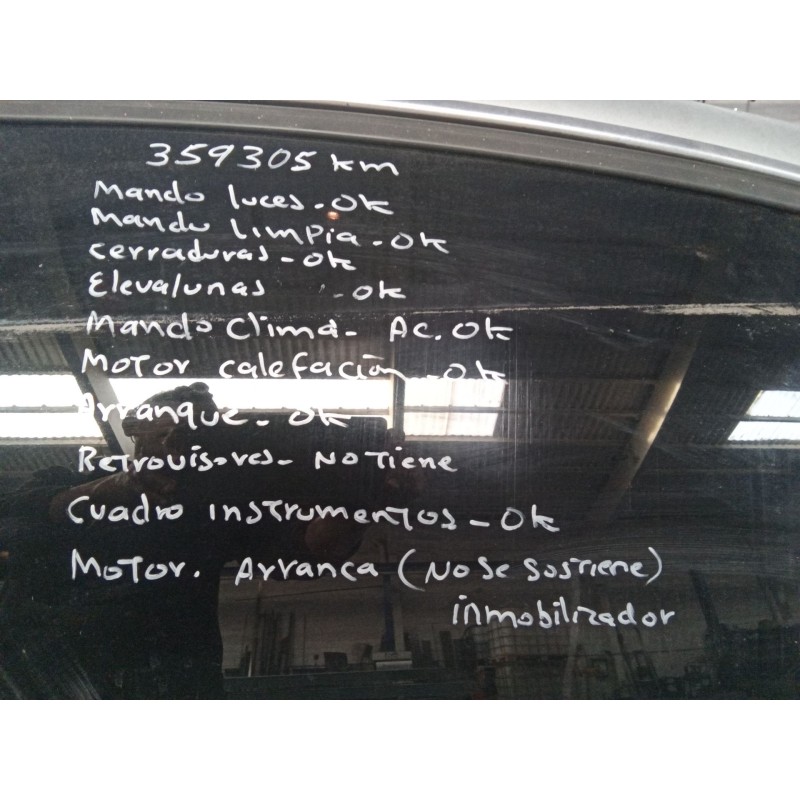 359305 km
Mando luces - OK
Mando Limpia - OK
cerraduras - OK
Elevalunas - OK
Mando Clima - AC. OK
Motor calefación - OK
Arranque - OK
Retrovisores - No Tiene
Cuadro instrumentos - OK
Motor. Arranca (No Se Sostiene)
inmobilizador